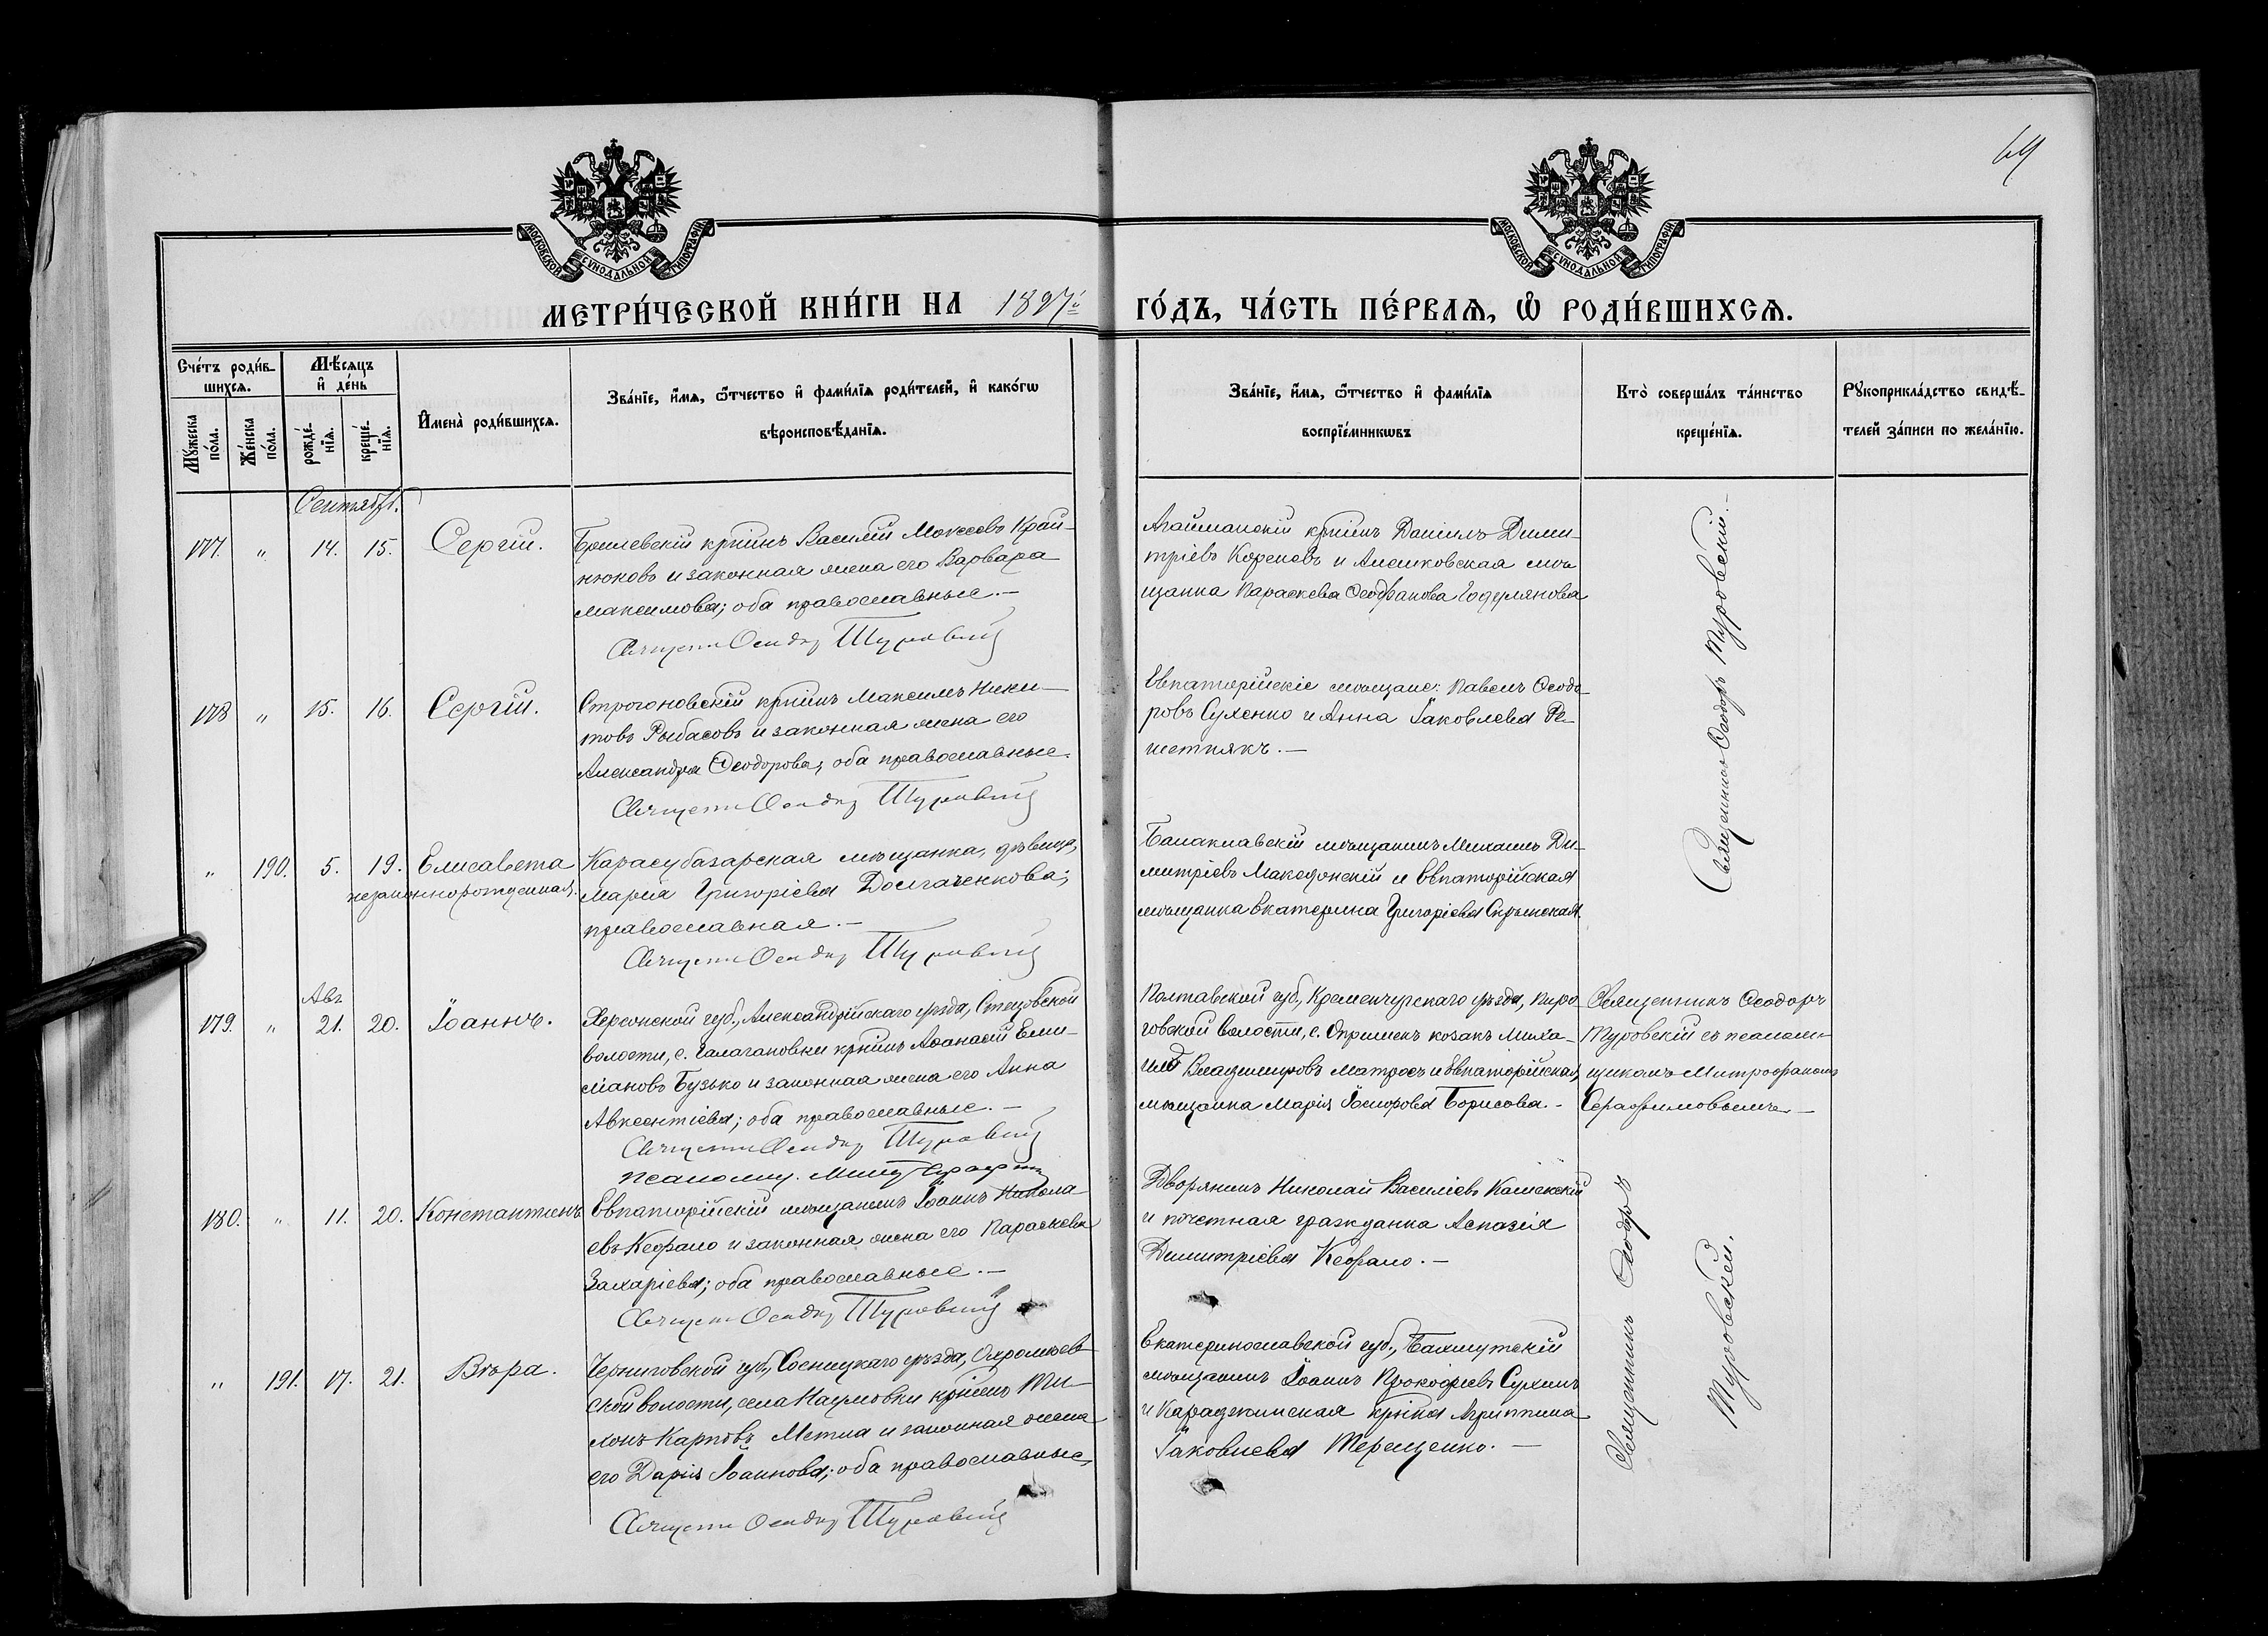 64
МОСКОВСКОЙ СѴНОДАЛЬНОЙ ТИПОГРАФІИ
МОСКОВСКОЙ СѴНОДАЛЬНОЙ ТИПОГРАФІИ
МЕТРИ́ЧЕСКОЙ КНИ́ГИ НА 1897й ГО́ДЪ, ЧА́СТЬ ПЕ́РВАѦ, Ѡ҆ РОДИ́ВШИХСѦ.
Сче́тъ роди́в-
шихсѧ.
Мѣ́сѧцъ
и҆ де́нь
Мꙋ́жеска по́ла.
Же́нска по́ла.
рожде́-
нїѧ.
креще́-
нїѧ.
И҆мена̀ роди́вшихсѧ.
Зва́нїе, и҆́мѧ, ѻ҆́тчество и҆ фами́лїѧ роди́телей, и҆ како́гѡ
вѣроисповѣ́данїѧ.
Зва́нїе, и҆́мѧ, ѻ҆́тчество и҆ фами́лїѧ
воспрїе́мникѡвъ
Кто̀ соверша́лъ та́инство
креще́нїѧ.
Рꙋкоприкла́дство свидѣ́-
телей за́писи по жела́нїю.
Сентябрь.
177. " 14. 15. Сергій.
Брилевскій крнинъ Василій Мокеевъ Край-
нюковъ и законная жена его Варвара
Максимова; оба православные.-
Священн Ѳеодоръ Туровскій
Агайманскій крнинъ Даніилъ Дими-
тріевъ Кореневъ и Алешковская мѣ-
щанка Параскева Ѳеофанова Годулянова
Священникъ Ѳеодоръ Туровскій.-
178 " 15. 16. Сергій.
Строгоновскій крнинъ Максимъ Ники-
товъ Рыбасовъ и законная жена его
Александра Ѳеодорова; оба православные.
Священн Ѳеодоръ Туровскій
Евпаторійскіе мѣщане: Павелъ Ѳеодо-
ровъ Сухенко и Анна Іаковлева Ре-
шетнякъ.-
" 190. 5. 19. Елисавета
незаконнорожденная.
Карасубазарская мѣщанка, дѣвица,
Марія Григоріева Долгаченкова;
православная.-
Священн Ѳеодоръ Туровскій
Балаклавскій мѣщанинъ Михаилъ Ди-
митріевъ Македонскій и Евпаторійская
мѣщанка Екатерина Григоріева Скрынская.
Авг
179. " 21. 20. Іоаннъ.
Херсонской губ., Александрійскаго уѣзда, Стецовской
волости, с. Галагановки крнинъ Аѳанасій Еми-
ліановъ Бузько и законная жена его Анна
Авксентіева; оба православные.-
Священн Ѳеодоръ Туровскій
Псаломщ. Митр Серафим
Полтавской губ., Кременчугскаго уѣзда, Пиро-
говской волости, с. Опришекъ козакъ Миха-
илъ Владимировъ Матросъ и Евпаторійская
мѣщанка Марія Исидорова Борисова.-
Священникъ Ѳеодоръ
Туровскій съ псалом-
щикомъ Митрофаномъ
Серафимовымъ.-
180. " 11. 20. Константинъ
Евпаторійскій мѣщанинъ Іоаннъ Никола-
евъ Кефало и законная жена его Параскева
Захаріева; оба православные.-
Священн Ѳеодоръ Туровскій
Дворянинъ Николай Василіевъ Каменскій
и почетная гражданка Аспазія
Димитріева Кефало.-
Священникъ Ѳеодоръ
Туровскій.
" 191. 17. 21. Вѣра.
Черниговской губ., Сосницкаго уѣзда, Охрамѣев-
ской волости, села Наумовки крнинъ Ти-
хонъ Карповъ Метла и законная жена
его Дарія Іоаннова; оба православные.
Священн Ѳеодоръ Туровскій
Екатеринославской губ., Бахмутскій
мѣщанинъ Іоаннъ Прокофіевъ Сухинъ
и Караджинская крнка Агриппина
Іаковлева Терещенко.-